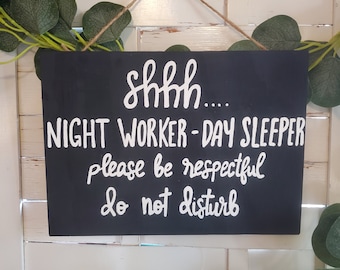 shhh....
NIGHT WORKER-DAY SLEEPER
please be respectful
do not disturb